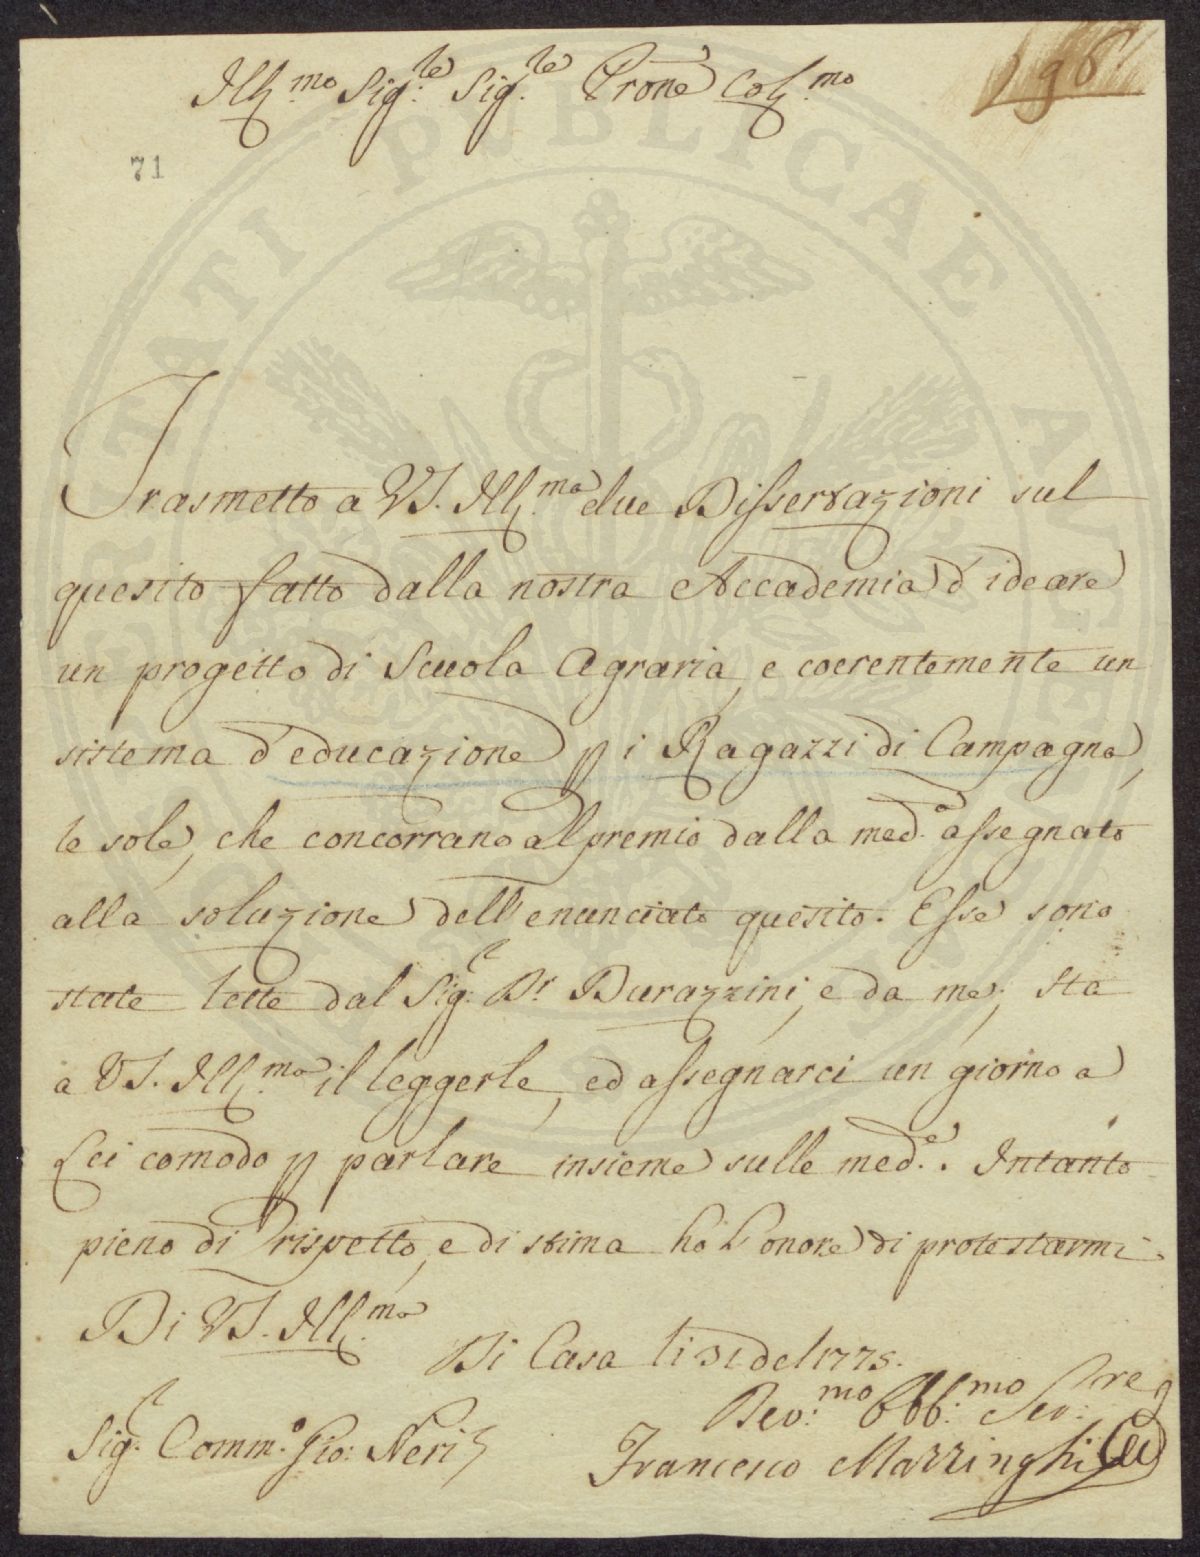 Ill.mo Sig.re Sig.re Prone Col.mo
198
71
Trasmetto a VS. Ill.ma due Dissertazioni sul
quesito fatto dalla nostra Accademia d'ideare
un progetto di Scuola Agraria, e coerentemente un
sistema d'educazione p i Ragazzi di Campagna,
le sole, che concorrano al premio dalla med.a assegnato
alla soluzione dell'enunciato quesito. Esse sono
state lette dal Sig.r Dr. Durazzini, e da me; sta
a VS. Ill.ma il leggerle, ed assegnarci un giorno a
Lei comodo p parlare insieme sulle med.e. Intanto
pieno di rispetto, e di stima ho l'onore di protestarmi
Di VS. Ill.ma
Di Casa li 31 del 1775.
Dev.mo Obb.mo Ser.re
Sig.r Comm.o Gio: Neri
Francesco Mazzinghi
PVBLICAE